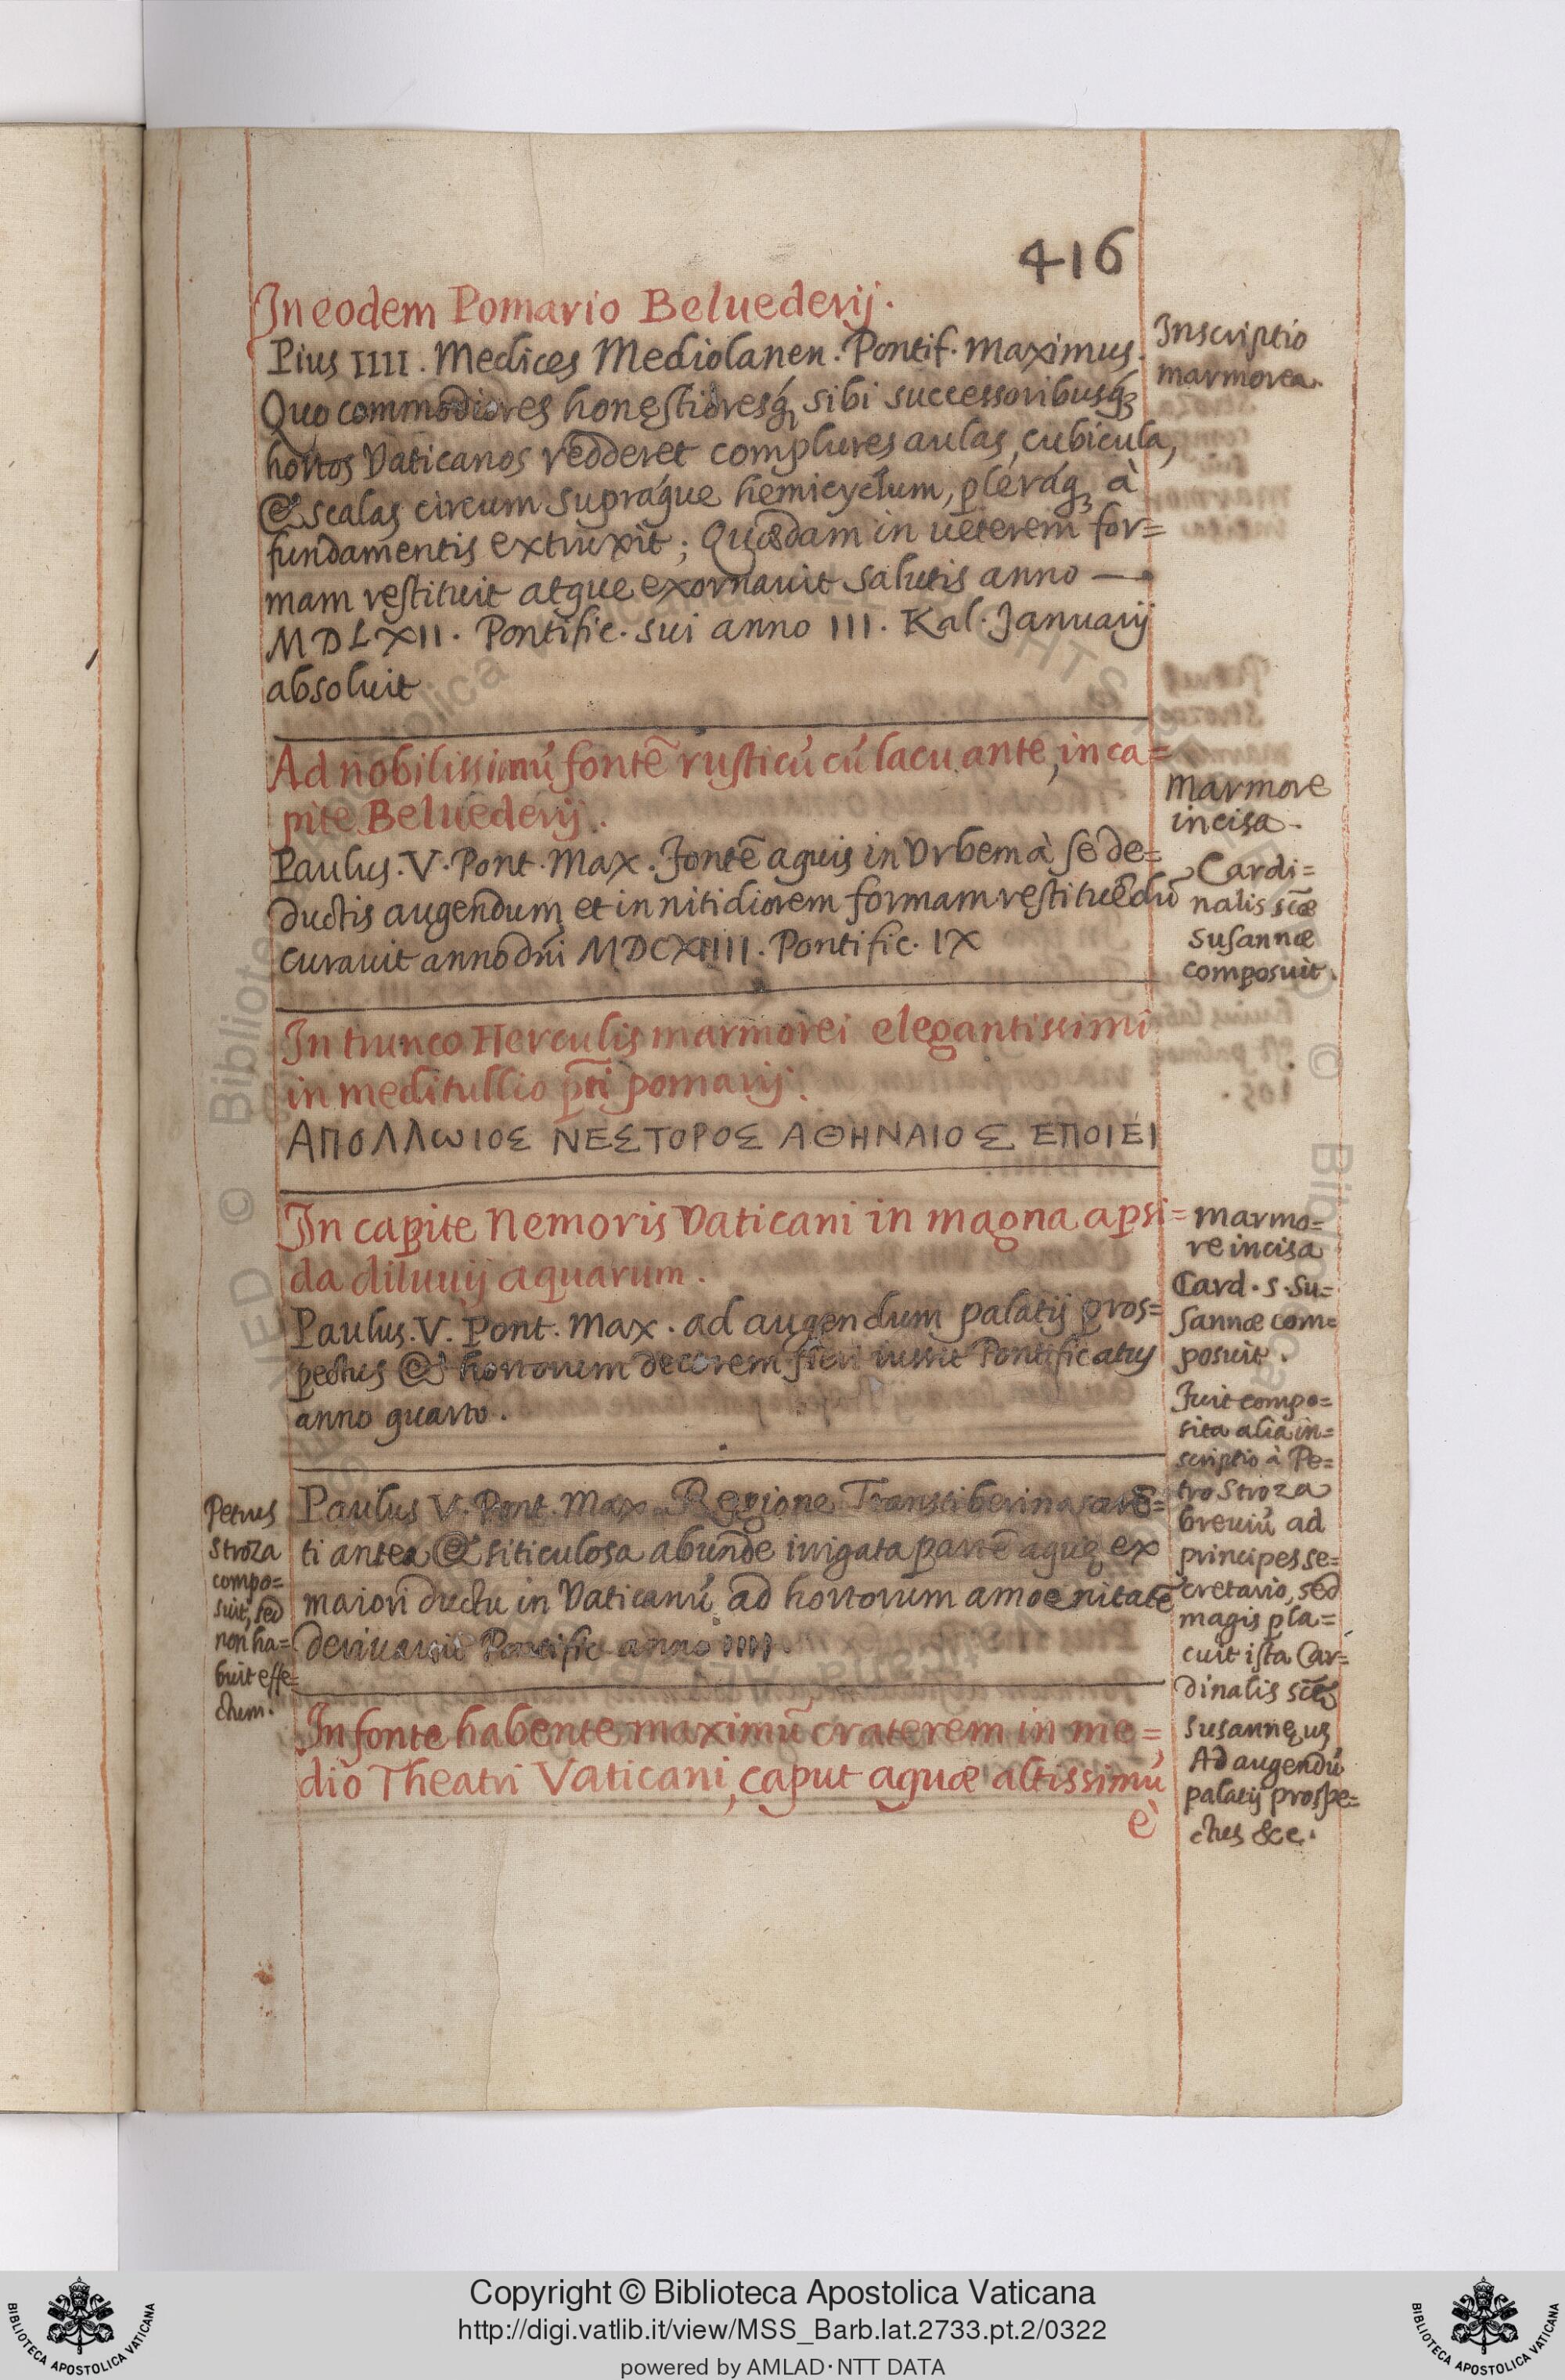 416
In eodem Pomario Beluederij.
Pius IIII. Medices Mediolanen. Pontif. Maximus.
Quo commodiores honestioresq́₃ sibi successoribusq́₃
hortos Vaticanos redderet complures aulas, cubicula,
& scalas circum supráque hemicyclum, pleráq₃ à
fundamentis extruxit; Quædam in ueterem for=
mam restituit atque exornauit salutis anno —
MDLXII. Pontific. sui anno III. Kal. Januarij
absoluit
Inscriptio
marmorea.
Ad nobilissimū fontē rusticū cū lacu ante, in ca=
pite Beluederij.
Paulus. V. Pont. Max. fontē aquis in Vrbem à se de=
ductis augendum et in nitidiorem formam restituēdū
curauit anno dn̄i MDCXIIII. Pontific. IX
Marmore
incisa.
Cardi=
nalis sc̄æ
Susannæ
composuit.
In trunco Herculis marmorei elegantissimi
in meditullio p̄ti pomarij.
ΑΠΟΛΛωΙΟΣ ΝΕΣΤΟΡΟΣ ΑΘΗΝΑΙΟΣ ΕΠΟΙΕΙ
In capite Nemoris Vaticani in magna apsi=
da diluuij aquarum.
Paulus. V. Pont. Max. ad augendum palatij pros=
pectus & hortorum decorem fieri iussit Pontificatus
anno quarto.
marmo=
re incisa
Card. S. Su=
sannæ com=
posuit.
Fuit compo=
sita alia in=
scriptio à Pe=
tro Stroza
breuiū ad
principes se=
cretario, sed
magis pla=
cuit ista Car=
dinalis sc̄æ
Susannę uz
Ad augendū
palatij prospe=
ctus &c.
Petrus
Stroza
compo=
suit, sed
non ha=
buit effe=
ctum.
Paulus V. Pont. Max. Regione Transtiberina arē=
ti antea & siticulosa abunde irrigata partē aquę ex
maiori ductu in Vaticanū ad hortorum amoenitatē
deriuauit Pontific. anno IIII.
In fonte habente maximū craterem in me=
dio Theatri Vaticani, caput aquæ altissimū
è
Copyright © Biblioteca Apostolica Vaticana
http://digi.vatlib.it/view/MSS_Barb.lat.2733.pt.2/0322
powered by AMLAD·NTT DATA
BIBLIOTECA APOSTOLICA VATICANA
BIBLIOTECA APOSTOLICA VATICANA